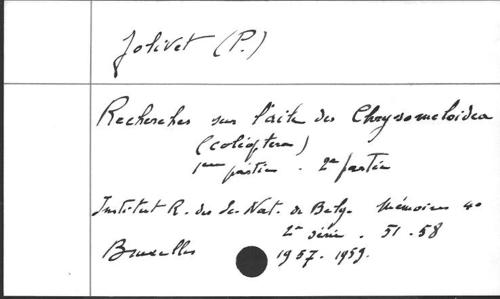 Jolivet (P.)
Recherches sur l'aile des Chrysomeloidea
(coléoptera)
1ère partie . 2e partie
Institut R. des Sc. Nat. de Belg. Mémoires 4o
2e série . 51 - 58
Bruxelles 1957. 1959.